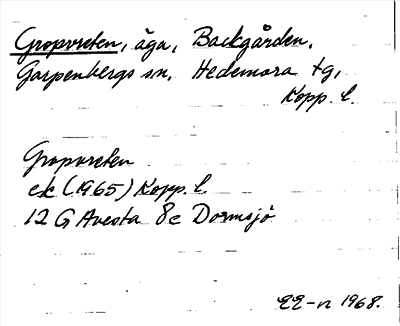 Gropvreten, äga, Backgården,
Garpenbergs sn, Hedemora tg,
Kopp. l.
Gropvreten
ek (1965) Kopp. l.
12 G Avesta 8c Dormsjö
22-VI 1968.